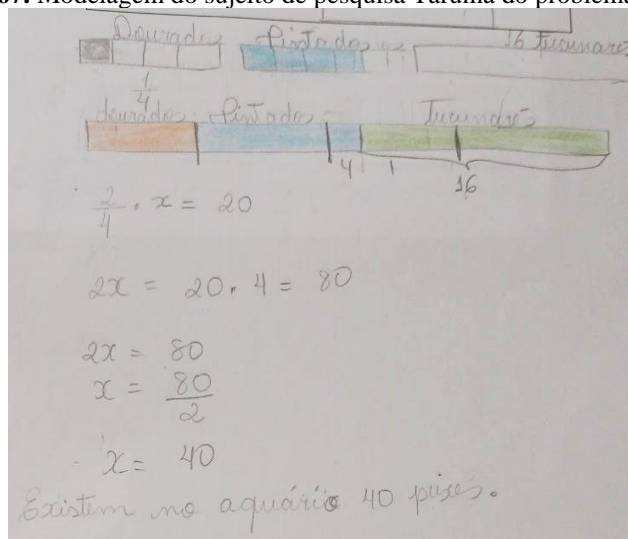 07. Modelagem do sujeito de pesquisa Tarumã do problema
Dourados Pintados 16 Tucunarés
1/4
dourados Pintados Tucunarés
4 1 16
2/4 . x = 20
2x = 20 . 4 = 80
2x = 80
x = 80/2
x = 40
Existem no aquário 40 peixes.